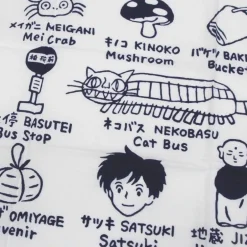 メイガニ MEIGANI
Mei Crab
キノコ KINOKO
Mushroom
バケツ BAK
Bucke
停 BASUTEI
Bus Stop
ネコバス NEKOBASU
Cat Bus
OMIYAGE
venir
サツキ SATSUKI
Satsuki
地蔵